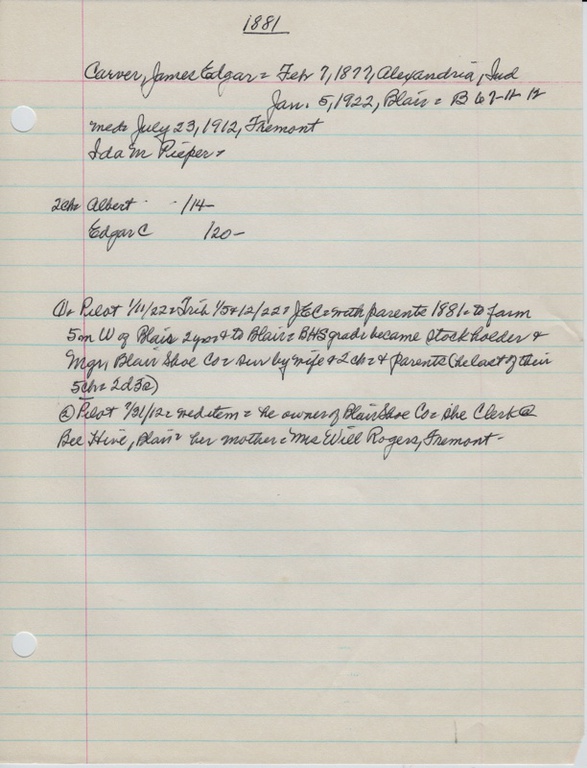 1881
Carver, James Edgar = Feb 7, 1877, Alexandria, Ind
Jan. 5, 1922, Blair = B 67-12
med= July 23, 1912, Fremont
Ida M Pieper =
2ch= Albert /14-
Edgar C /20-
① = Pilot 1/11/22 = Trib 1/5 & 12/22 = JEC = with parents 1881 = to farm
5m W of Blair 2 yrs & to Blair = BHS grad = became stockholder &
Mgr, Blair Shoe Co = sur by wife & 2ch = & parents (he last of their
5ch = 2d 3s)
② Pilot 7/31/12 = wed item = he owner of Blair Shoe Co = she Clerk @
Bee Hive, Blair = her mother = Mrs Will Rogers, Fremont-